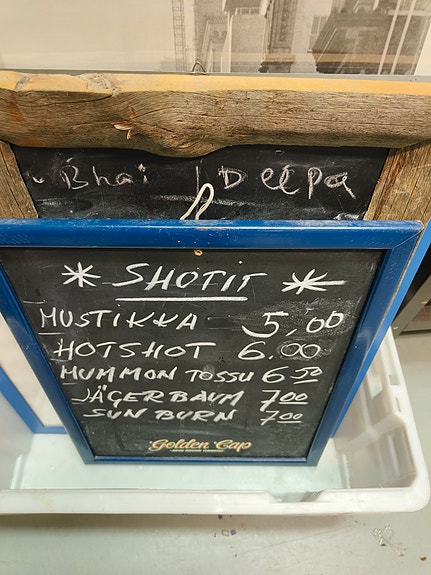 Bhai Deepa
* SHOTIT *
MUSTIKKA 5,00
HOTSHOT 6.00
MUMMON TOSSU 6 50
JÄGERBAUM 7 00
SUN BURN 7 00
Golden Cap